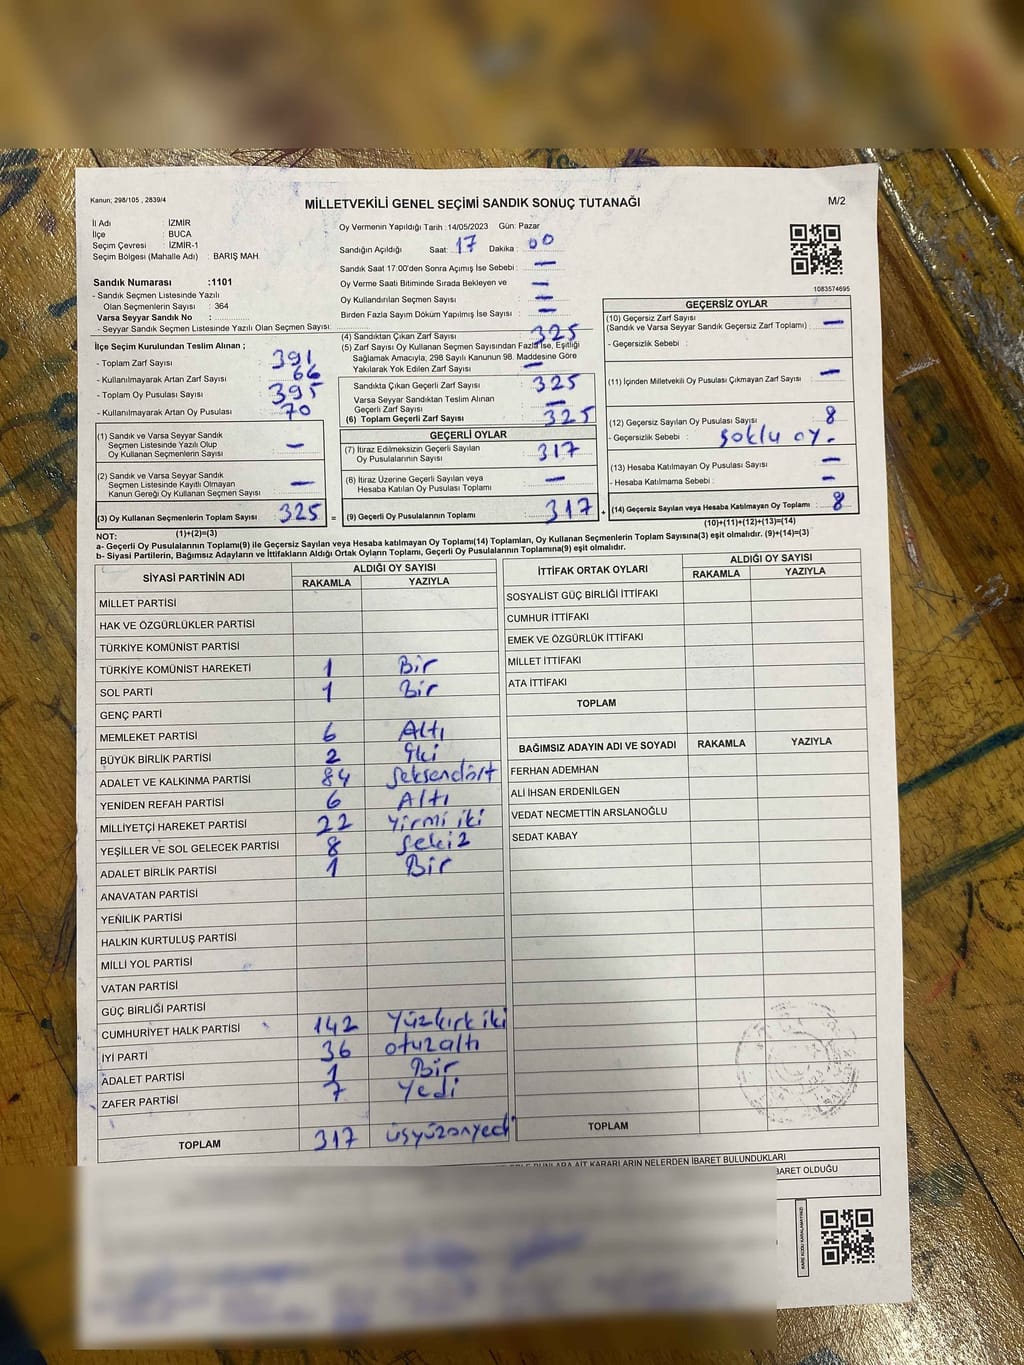 Kanun; 298/105 , 2839/4
MİLLETVEKİLİ GENEL SEÇİMİ SANDIK SONUÇ TUTANAĞI
M/2
İl Adı : İZMİR
İlçe : BUCA
Seçim Çevresi : İZMİR-1
Seçim Bölgesi (Mahalle Adı) : BARIŞ MAH.
Sandık Numarası :1101
- Sandık Seçmen Listesinde Yazılı
Olan Seçmenlerin Sayısı : 364
Varsa Seyyar Sandık No :
- Seyyar Sandık Seçmen Listesinde Yazılı Olan Seçmen Sayısı:
Oy Vermenin Yapıldığı Tarih : 14/05/2023 Gün: Pazar
Sandığın Açıldığı Saat: 17 Dakika : 00
Sandık Saat 17:00'den Sonra Açımış İse Sebebi : —
Oy Verme Saati Bitiminde Sırada Bekleyen ve —
Oy Kullandırılan Seçmen Sayısı : —
Birden Fazla Sayım Döküm Yapılmış İse Sayısı : —
1083574695
İlçe Seçim Kurulundan Teslim Alınan ;
- Toplam Zarf Sayısı : 391
- Kullanılmayarak Artan Zarf Sayısı : 66
- Toplam Oy Pusulası Sayısı : 395
- Kullanılmayarak Artan Oy Pusulası : 70
(1) Sandık ve Varsa Seyyar Sandık
Seçmen Listesinde Yazılı Olup
Oy Kullanan Seçmenlerin Sayısı : —
(2) Sandık ve Varsa Seyyar Sandık
Seçmen Listesinde Kayıtlı Olmayan
Kanun Gereği Oy Kullanan Seçmen Sayısı : —
(3) Oy Kullanan Seçmenlerin Toplam Sayısı : 325 =
(1)+(2)=(3)
(4) Sandıktan Çıkan Zarf Sayısı : 325
(5) Zarf Sayısı Oy Kullanan Seçmen Sayısından Fazla İse, Eşitliği
Sağlamak Amacıyla, 298 Sayılı Kanunun 98. Maddesine Göre
Yakılarak Yok Edilen Zarf Sayısı : —
Sandıkta Çıkan Geçerli Zarf Sayısı : 325
Varsa Seyyar Sandıktan Teslim Alınan
Geçerli Zarf Sayısı : —
(6) Toplam Geçerli Zarf Sayısı : 325
GEÇERLİ OYLAR
(7) İtiraz Edilmeksizin Geçerli Sayılan
Oy Pusulalarının Sayısı : 317
(8) İtiraz Üzerine Geçerli Sayılan veya
Hesaba Katılan Oy Pusulası Toplamı : —
(9) Geçerli Oy Pusulalarının Toplamı : 317 +
GEÇERSİZ OYLAR
(10) Geçersiz Zarf Sayısı
(Sandık ve Varsa Seyyar Sandık Geçersiz Zarf Toplamı) : —
- Geçersizlik Sebebi :
(11) İçinden Milletvekili Oy Pusulası Çıkmayan Zarf Sayısı : —
(12) Geçersiz Sayılan Oy Pusulası Sayısı : 8
- Geçersizlik Sebebi : Şoklu oy.
(13) Hesaba Katılmayan Oy Pusulası Sayısı : —
- Hesaba Katılmama Sebebi : —
(14) Geçersiz Sayılan veya Hesaba Katılmayan Oy Toplamı : 8
(10)+(11)+(12)+(13)=(14)
NOT:
a- Geçerli Oy Pusulalarının Toplamı(9) ile Geçersiz Sayılan veya Hesaba Katılmayan Oy Toplamı(14) Toplamları, Oy Kullanan Seçmenlerin Toplam Sayısına(3) eşit olmalıdır. (9)+(14)=(3)
b- Siyasi Partilerin, Bağımsız Adayların ve İttifakların Aldığı Ortak Oyların Toplamı, Geçerli Oy Pusulalarının Toplamına(9) eşit olmalıdır.
SİYASİ PARTİNİN ADI ALDIĞI OY SAYISI
RAKAMLA YAZIYLA
MİLLET PARTİSİ
HAK VE ÖZGÜRLÜKLER PARTİSİ
TÜRKİYE KOMÜNİST PARTİSİ
TÜRKİYE KOMÜNİST HAREKETİ 1 Bir
SOL PARTİ 1 Bir
GENÇ PARTİ
MEMLEKET PARTİSİ 6 Altı
BÜYÜK BİRLİK PARTİSİ 2 İki
ADALET VE KALKINMA PARTİSİ 84 Seksendört
YENİDEN REFAH PARTİSİ 6 Altı
MİLLİYETÇİ HAREKET PARTİSİ 22 Yirmi iki
YEŞİLLER VE SOL GELECEK PARTİSİ 8 Sekiz
ADALET BİRLİK PARTİSİ 1 Bir
ANAVATAN PARTİSİ
YENİLİK PARTİSİ
HALKIN KURTULUŞ PARTİSİ
MİLLİ YOL PARTİSİ
VATAN PARTİSİ
GÜÇ BİRLİĞİ PARTİSİ
CUMHURİYET HALK PARTİSİ 142 Yüzkırk iki
İYİ PARTİ 36 otuzaltı
ADALET PARTİSİ 1 Bir
ZAFER PARTİSİ 7 Yedi
TOPLAM 317 üsyüzonyedi
İTTİFAK ORTAK OYLARI ALDIĞI OY SAYISI
RAKAMLA YAZIYLA
SOSYALİST GÜÇ BİRLİĞİ İTTİFAKI
CUMHUR İTTİFAKI
EMEK VE ÖZGÜRLÜK İTTİFAKI
MİLLET İTTİFAKI
ATA İTTİFAKI
TOPLAM
BAĞIMSIZ ADAYIN ADI VE SOYADI RAKAMLA YAZIYLA
FERHAN ADEMHAN
ALİ İHSAN ERDENİLGEN
VEDAT NECMETTİN ARSLANOĞLU
SEDAT KABAY
TOPLAM
BUNLARA AİT KARARLARIN NELERDEN İBARET BULUNDUKLARI
BARET OLDUĞU
KARE KODU KARALAMAYINIZ!